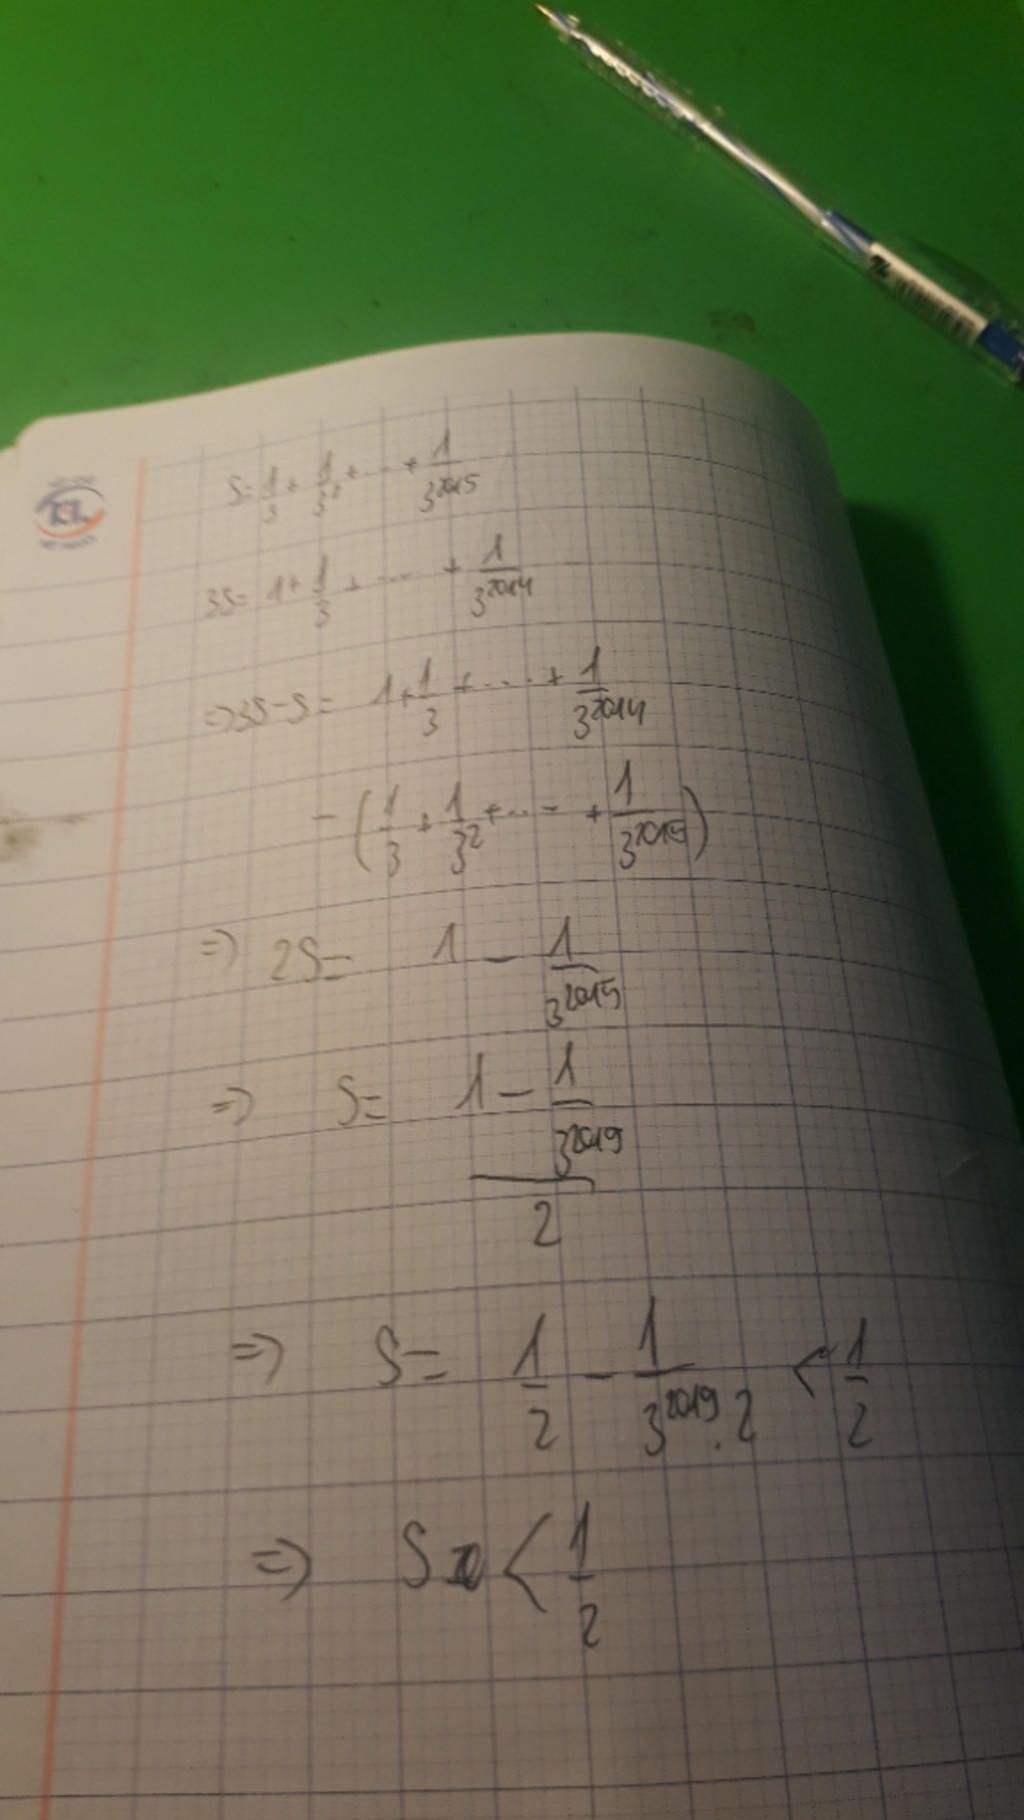 S = 1/3 + 1/3² + ... + 1/3²⁰¹⁵
3S = 1 + 1/3 + .... + 1/3²⁰¹⁴
=> 3S - S = 1 + 1/3 + .... + 1/3²⁰¹⁴
- (1/3 + 1/3² + .... + 1/3²⁰¹⁵)
=> 2S = 1 - 1/3²⁰¹⁵
=> S = (1 - 1/3²⁰¹⁹)/2
=> S = 1/2 - 1/(3²⁰¹⁹ . 2) < 1/2
=> S < 1/2